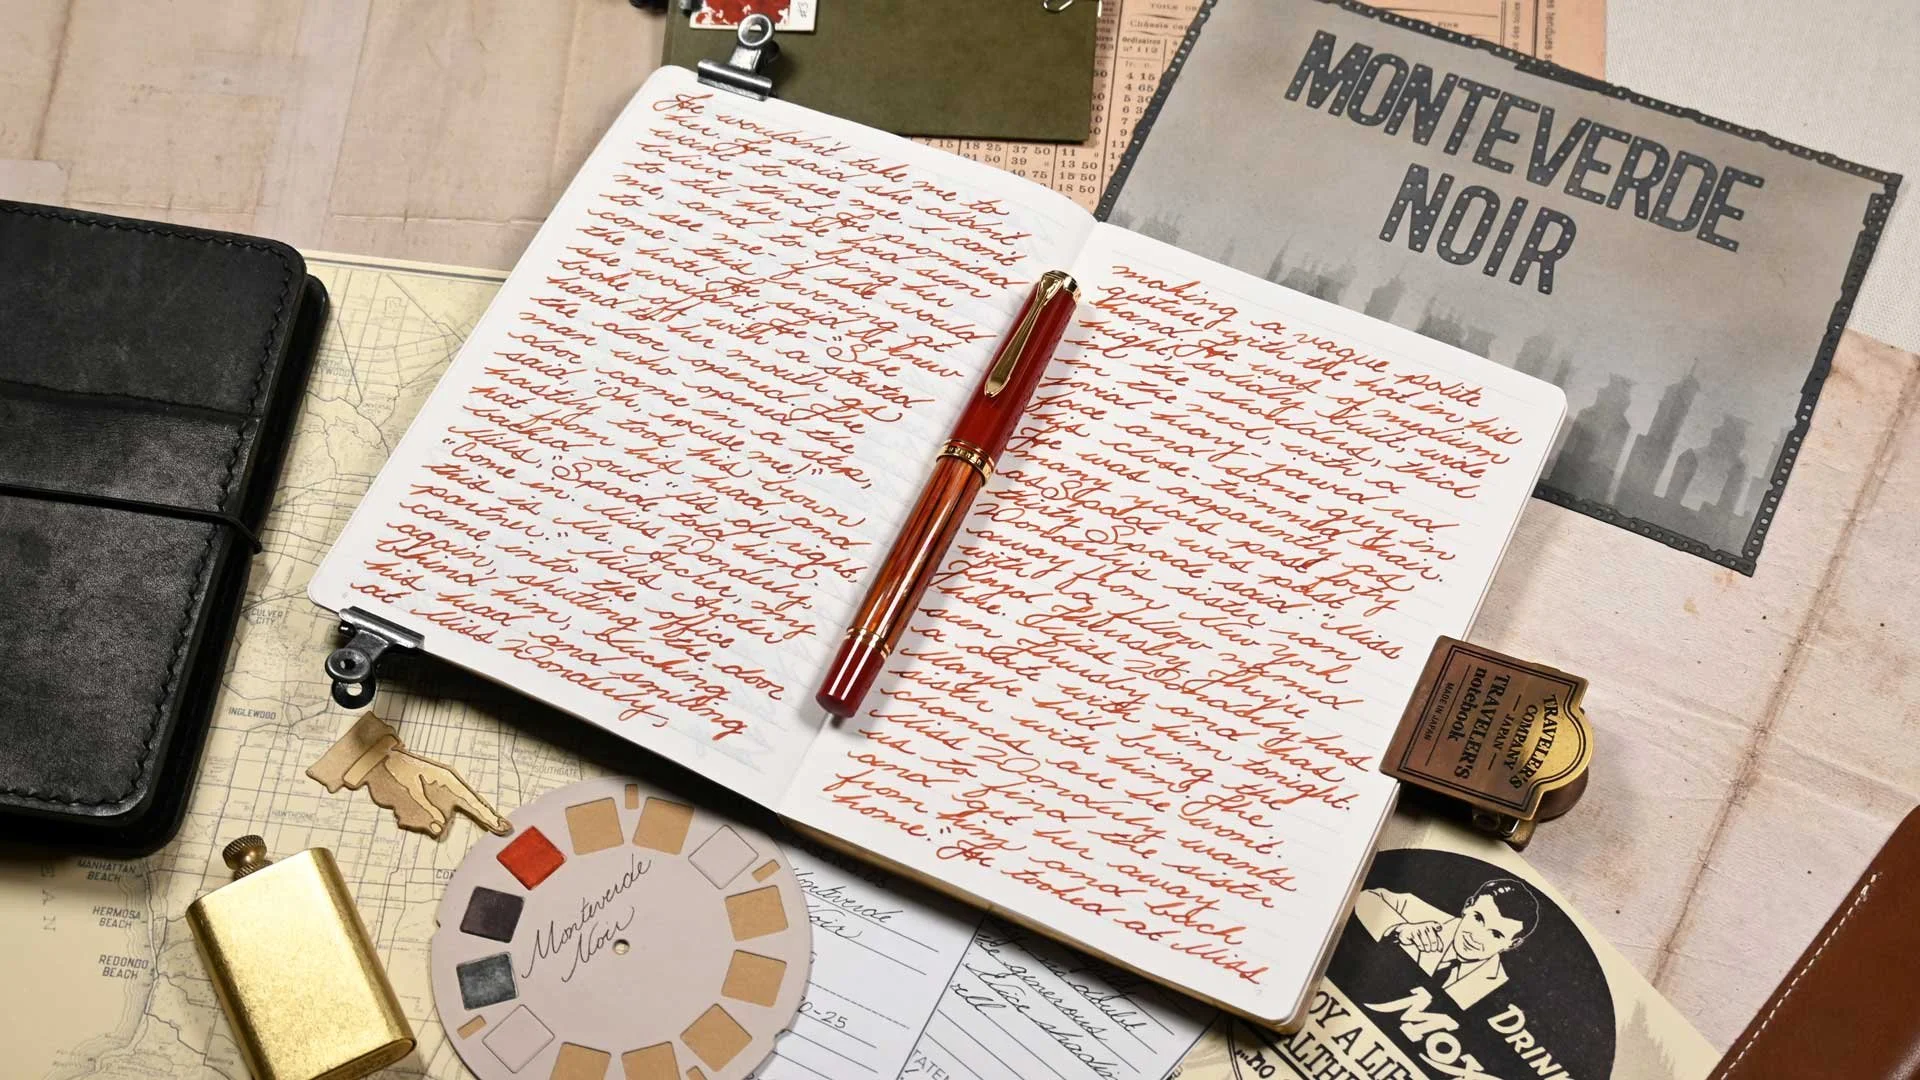 He wouldn't take me to
her. He said she didn't
want to see me, I can't
believe that. He promised
to tell her he had seen
me, and to bring her
to see me-if she would
come-this evening at
the hotel. He said he knew
she wouldn't. He-" She
broke off with a startled
hand to her mouth as
the door opened. The
man who opened the
door came in a step,
said, "Oh, excuse me!",
hastily took his brown
hat from his head, and
backed out. "It's all right,
Miles," Spade told him.
"Come in. Miss Wonderly,
this is Mr. Archer, my
partner." Miles Archer
came into the office
again, shutting the door
behind him, ducking
his head and smiling
at Miss Wonderly,
making a vague polite
gesture with the hat in his
hand. He was of medium
height, solidly built, wide
in the shoulders, thick
in the neck, with a
jovial
face and
his close-trimmed hair.
He was apparently as
many years past forty
as Spade was past
thirty. Spade said: "Miss
Wonderly's sister ran
away from New York
with a named
Floyd Thursby. They're
here. Miss Wonderly has
seen Thursby and has
a date with him tonight.
Maybe he'll bring the
sister with him. The
chances are he won't.
Miss Wonderly wants
us to find the sister
and get her away
from him and back
home." He looked at Miss
MONTEVERDE
NOIR
TRAVELER'S
COMPANY
JAPAN
TRAVELER'S
notebook
MADE IN JAPAN
Monteverde
Noir
CULVER
CITY
INGLEWOOD
SOUTHGATE
HAWTHORNE
MANHATTAN
BEACH
HERMOSA
BEACH
REDONDO
BEACH
DRINK
MOX